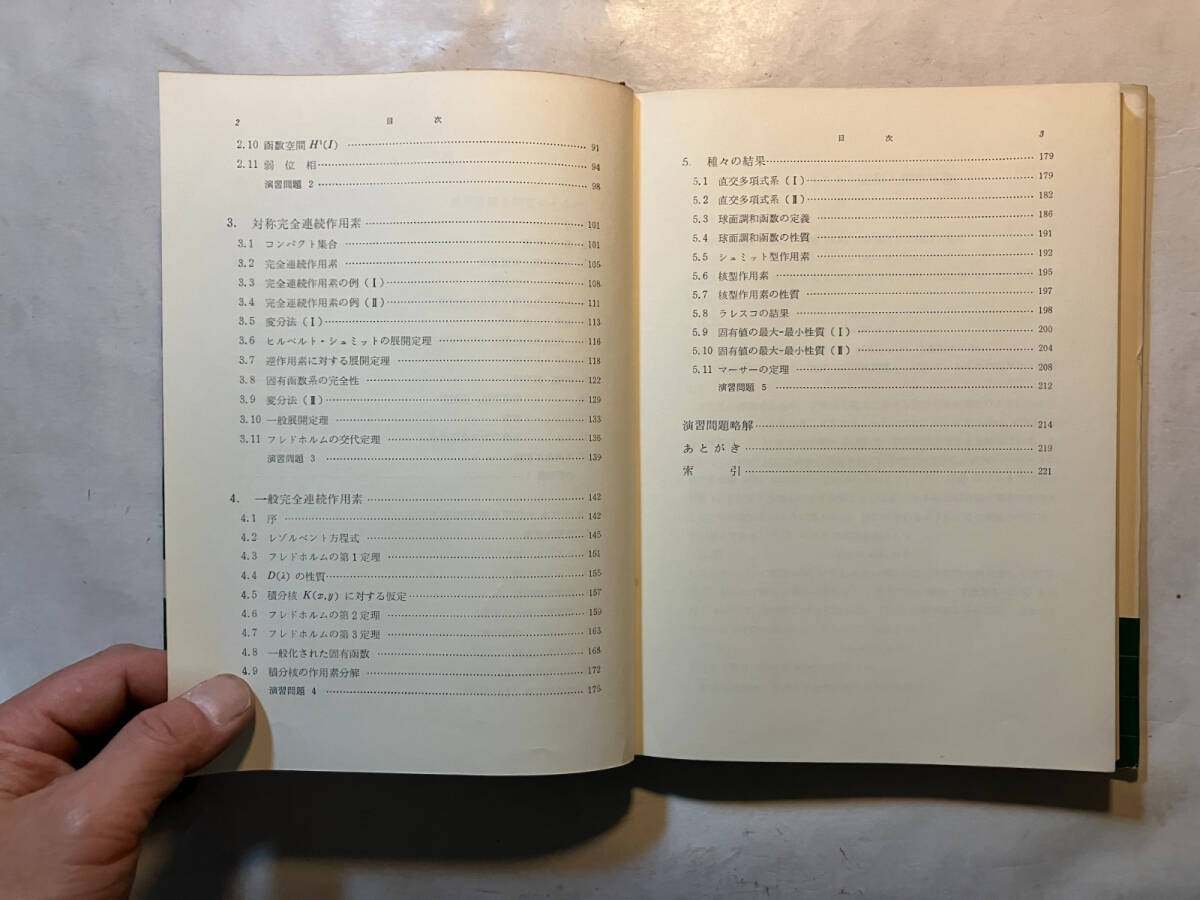 2 目次
2.10 函数空間 H¹(I) 91
2.11 弱位相 94
演習問題 2 98
3. 対称完全連続作用素 101
3.1 コンパクト集合 101
3.2 完全連続作用素 105
3.3 完全連続作用素の例(Ⅰ) 108
3.4 完全連続作用素の例(Ⅱ) 111
3.5 変分法(Ⅰ) 113
3.6 ヒルベルト・シュミットの展開定理 116
3.7 逆作用素に対する展開定理 118
3.8 固有函数系の完全性 122
3.9 変分法(Ⅱ) 129
3.10 一般展開定理 133
3.11 フレドホルムの交代定理 136
演習問題 3 139
4. 一般完全連続作用素 142
4.1 序 142
4.2 レゾルベント方程式 145
4.3 フレドホルムの第1定理 151
4.4 D(λ) の性質 155
4.5 積分核 K(x,y) に対する仮定 157
4.6 フレドホルムの第2定理 159
4.7 フレドホルムの第3定理 163
4.8 一般化された固有函数 168
4.9 積分核の作用素分解 172
演習問題 4 175
目次 3
5. 種々の結果 179
5.1 直交多項式系(Ⅰ) 179
5.2 直交多項式系(Ⅱ) 182
5.3 球面調和函数の定義 186
5.4 球面調和函数の性質 191
5.5 シュミット型作用素 192
5.6 核型作用素 195
5.7 核型作用素の性質 197
5.8 ラレスコの結果 198
5.9 固有値の最大-最小性質(Ⅰ) 200
5.10 固有値の最大-最小性質(Ⅱ) 204
5.11 マーサーの定理 208
演習問題 5 212
演習問題略解 214
あとがき 219
索引 221